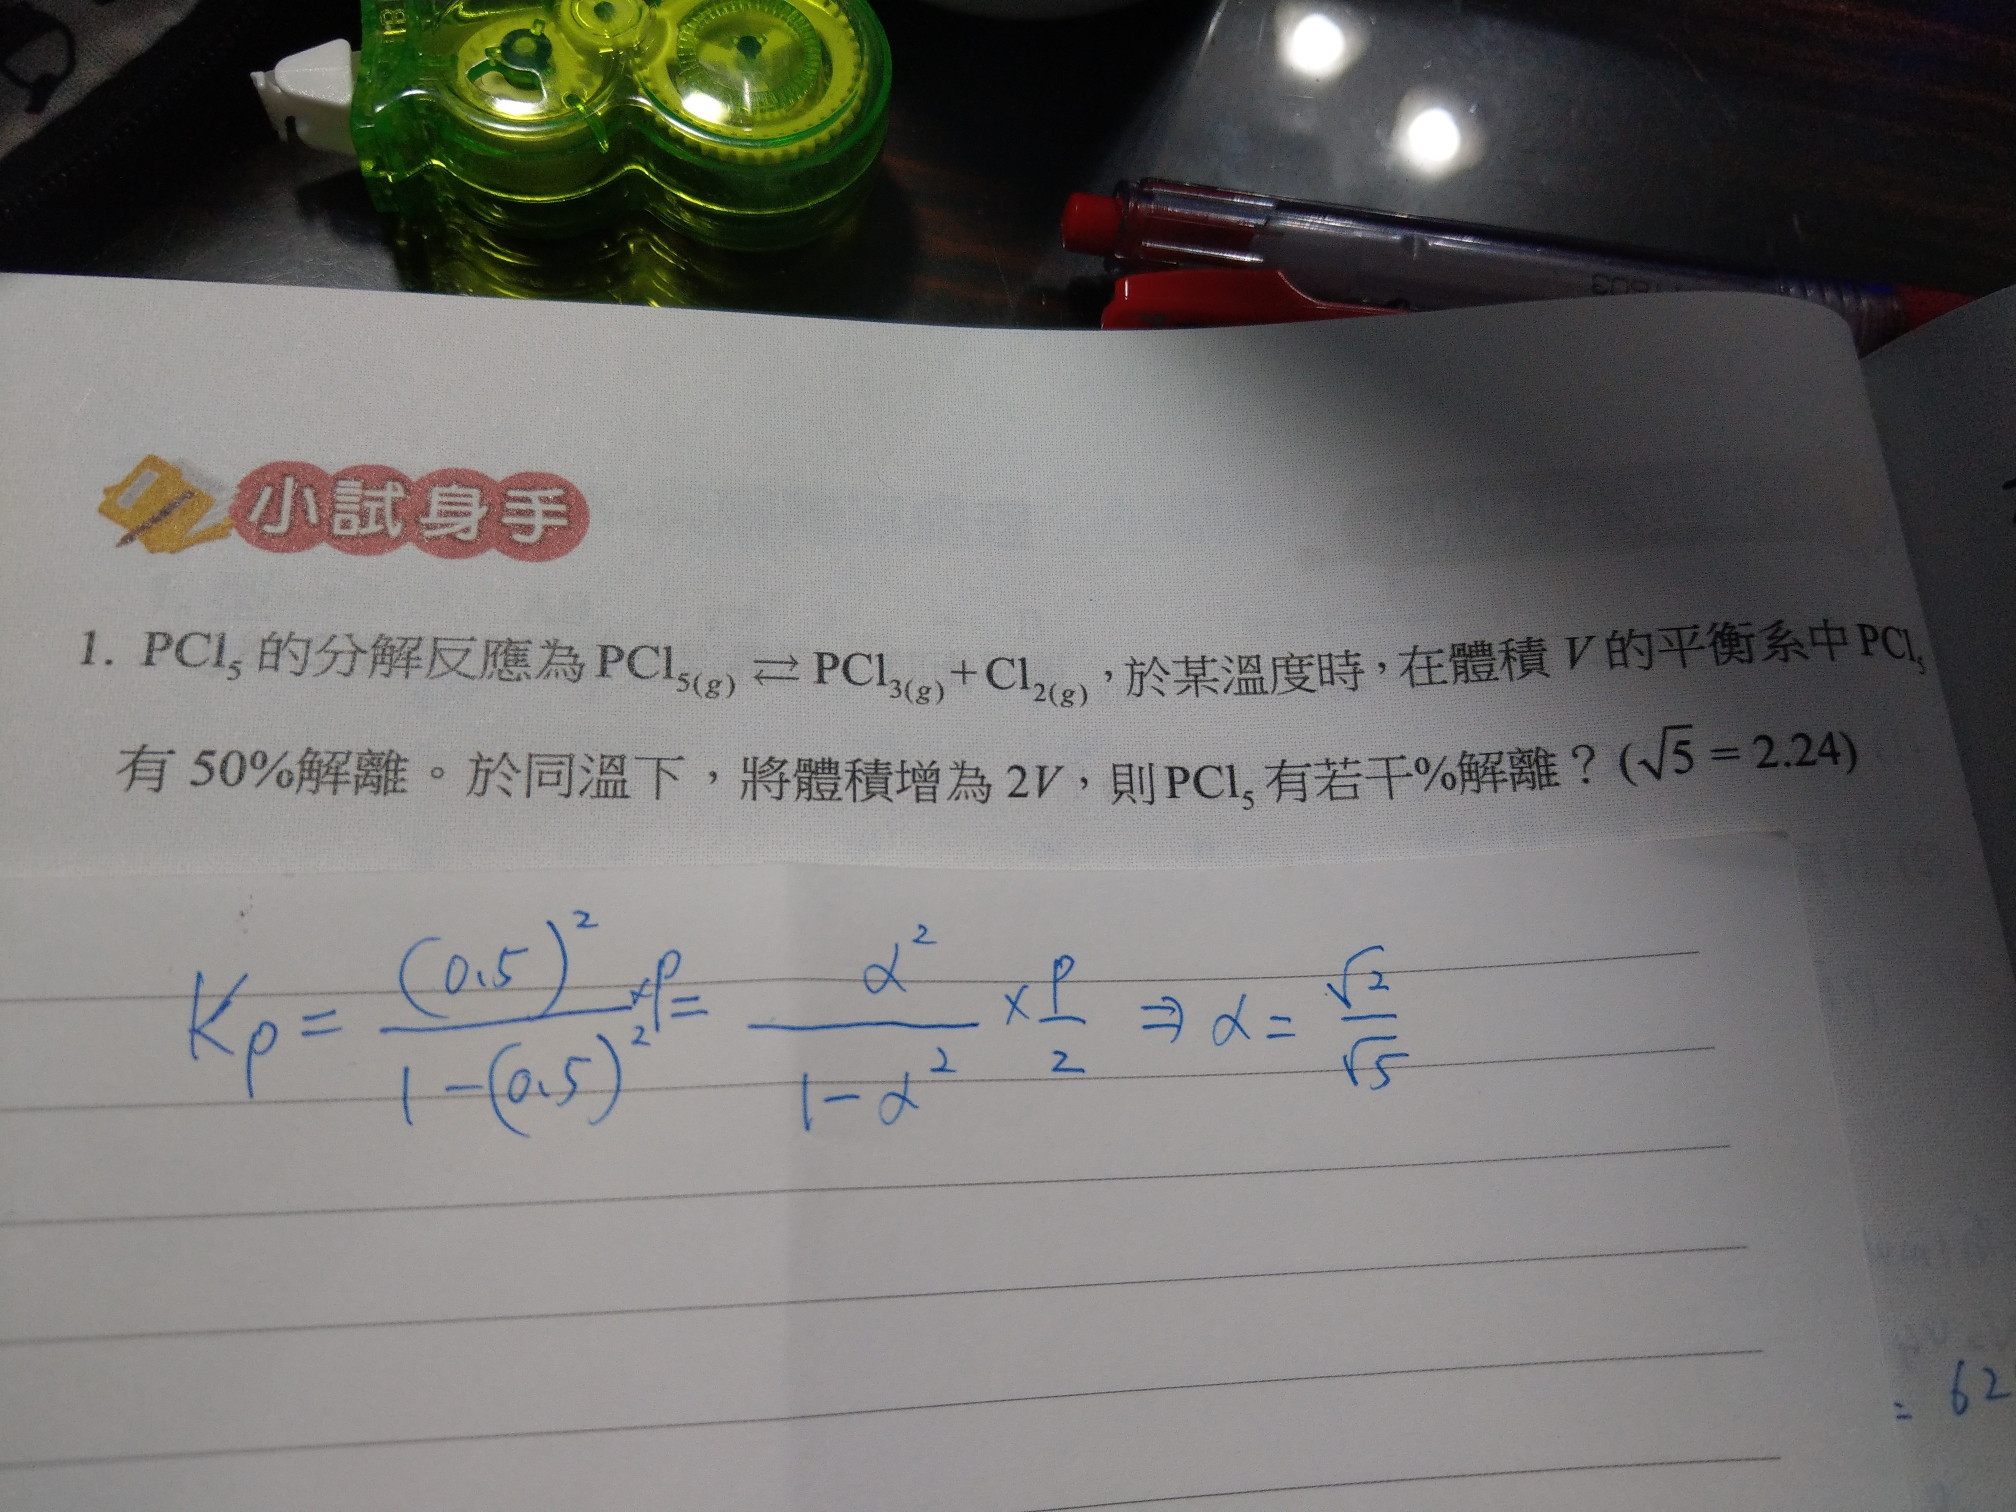 小試身手
1. PCl₅ 的分解反應為 PCl₅(g) ⇄ PCl₃(g) + Cl₂(g)，於某溫度時，在體積 V 的平衡系中 PCl₅
有 50%解離。於同溫下，將體積增為 2V，則 PCl₅ 有若干%解離？(√5 = 2.24)
Kp = (0.5)² / 1-(0.5)² × P = α² / 1-α² × P/2 ⇒ α = √2/√5
= 62